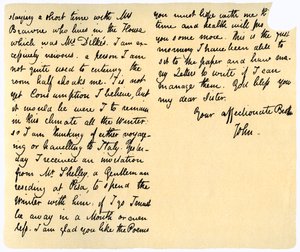 staying a short time with Mrs
Brawne who lives in the House
which was Mr Dilke's. I am ex-
cessively nervous. a person I am
not quite used to entering the
room half choaks me. 'Tis not
yet Consumption I believe, but
it would be were I to remain
in this climate all the Winter:
so I am thinking of either voyag-
ing or travelling to Italy. Yester-
day I received an invitation
from Mr Shelley, a Gentleman
residing at Pisa, to spend the
Winter with him: if I go I must
be away in a Month or even
less. I am glad you like the Poems
you must hope with me that
time and health will pro
you some more. This is the first
morning I have been able to
sit to the paper and have ma-
ny Letters to write if I can
manage them. God bless you
my dear Sister.
Your affectionate Broth
John.